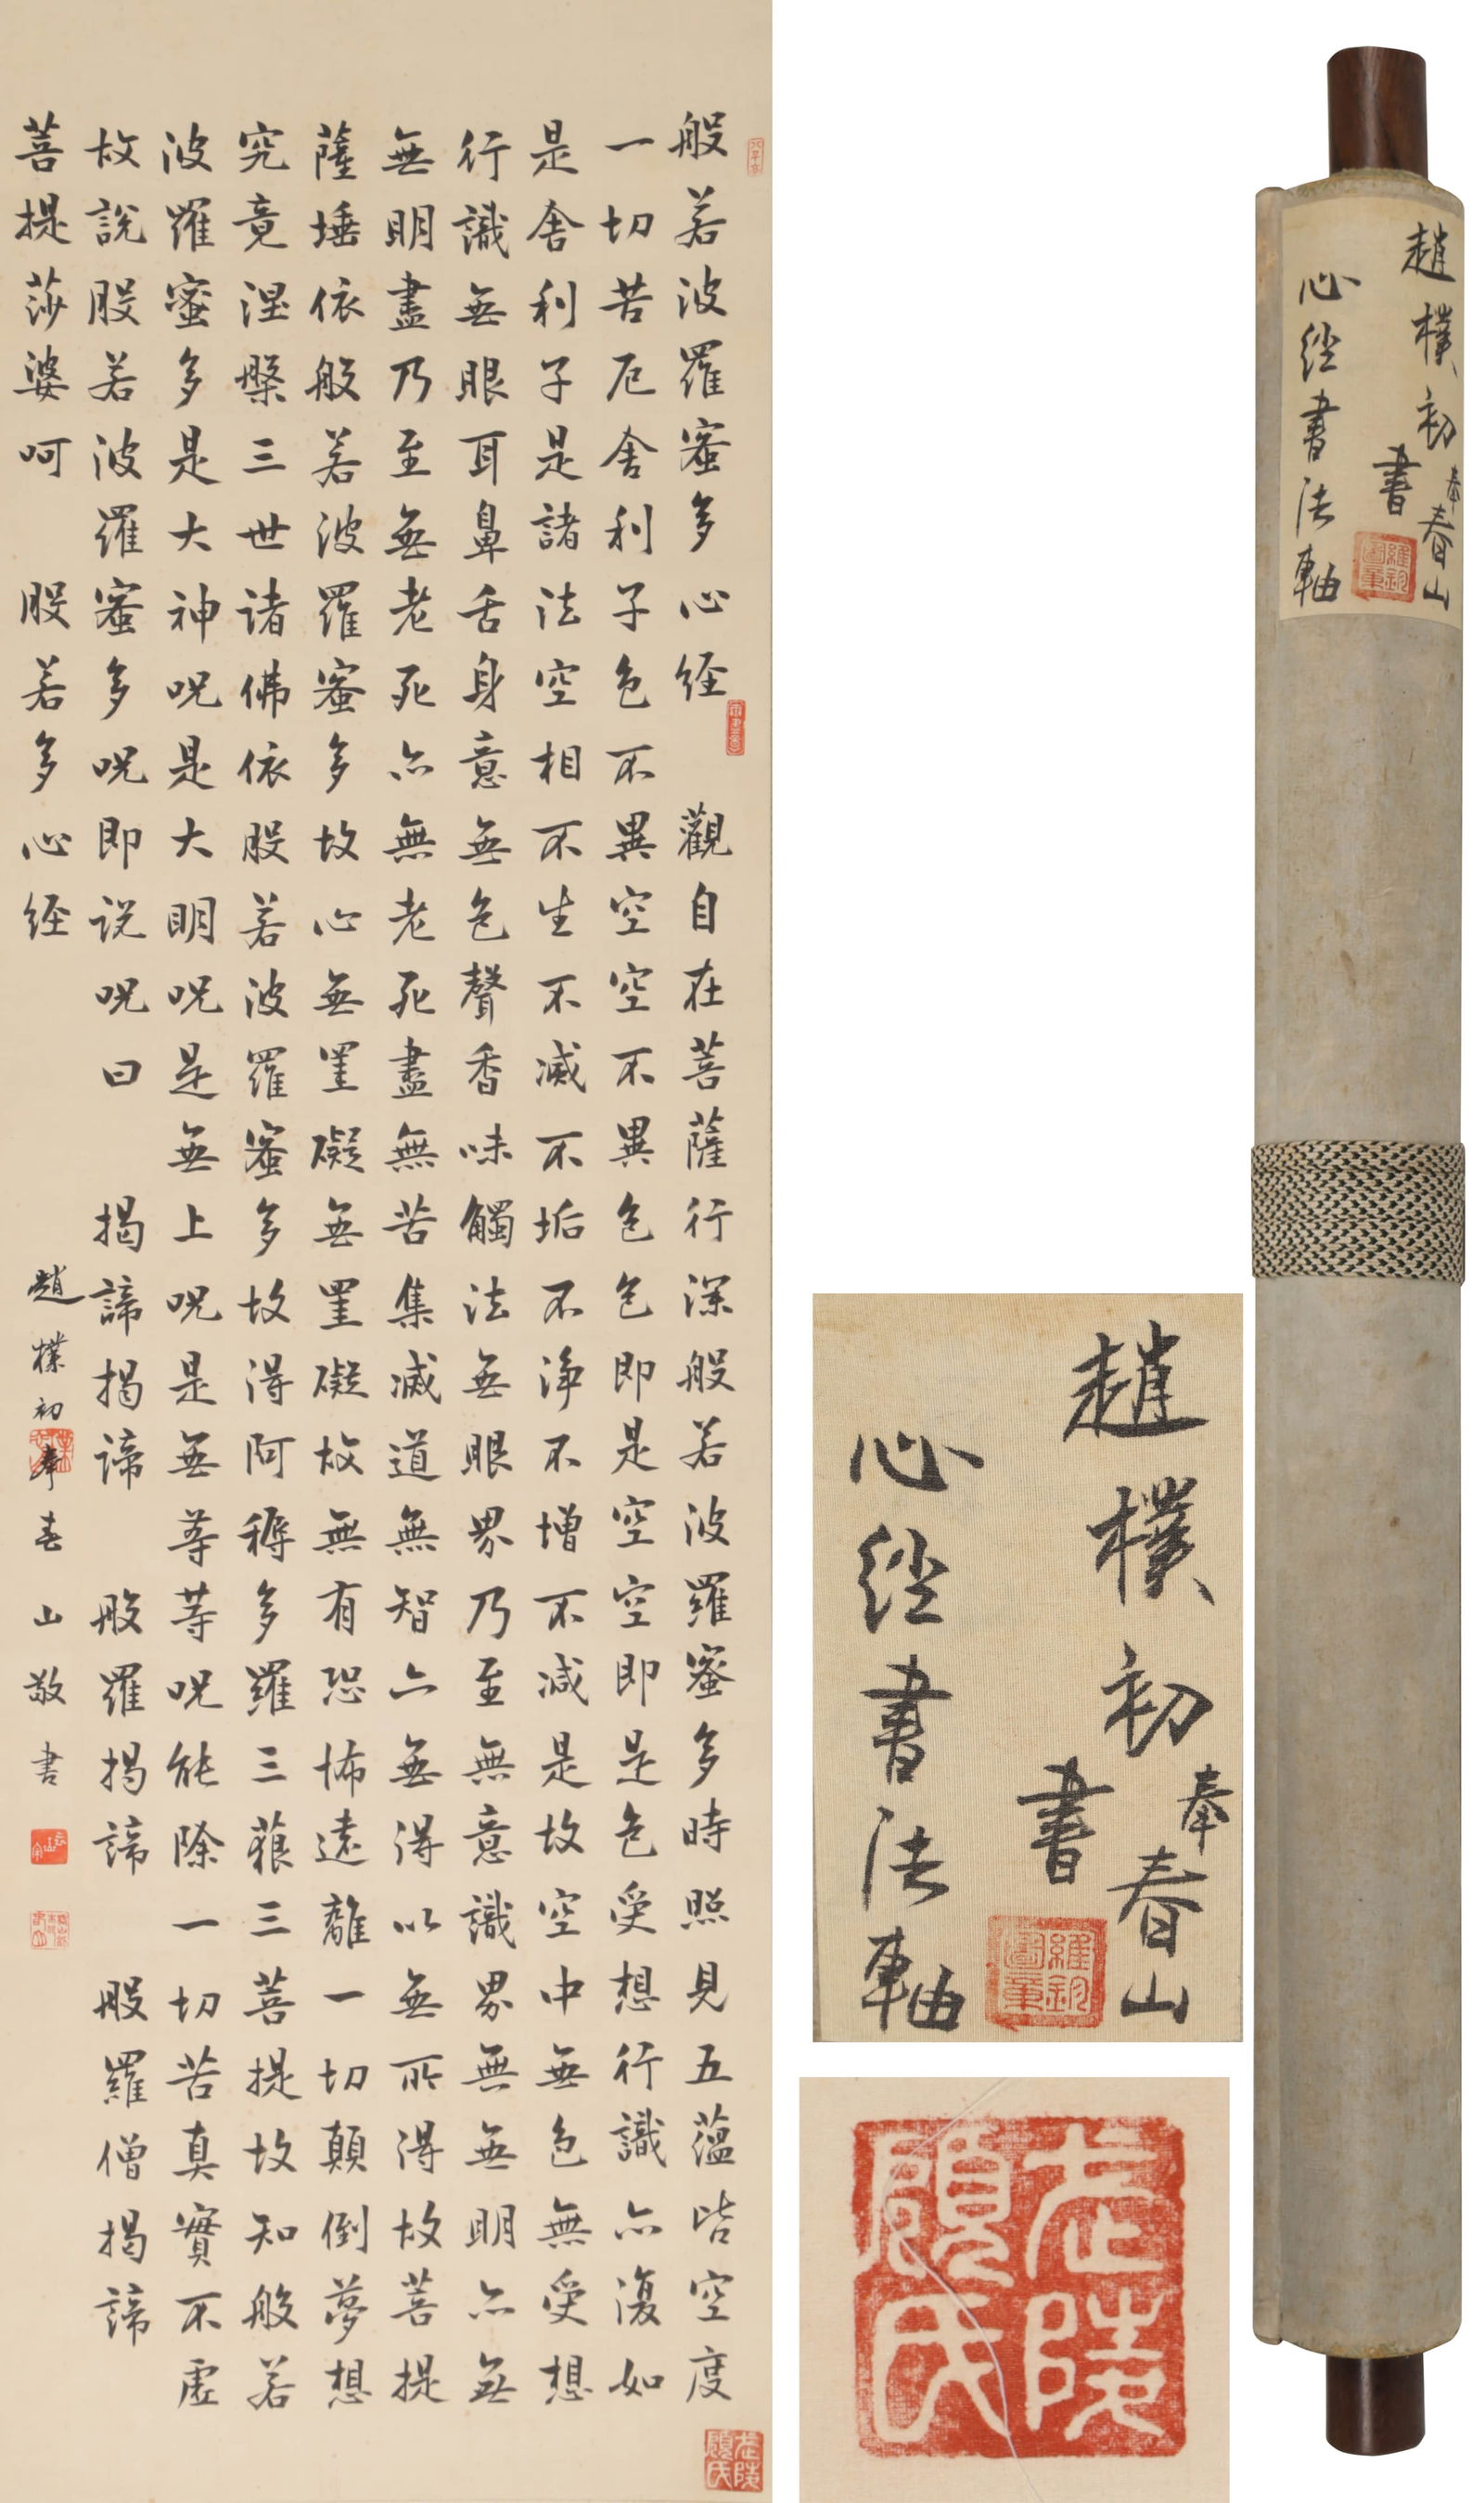 般若波羅蜜多心经 觀自在菩薩行深般若波羅蜜多時照見五蕴皆空度
一切苦厄舍利子色不異空空不異色色即是空空即是色受想行識亦復如
是舍利子是諸法空相不生不滅不垢不淨不增不減是故空中無色無受想
行識無眼耳鼻舌身意無色聲香味觸法無眼界乃至無意識界無無明亦無
無明盡乃至無老死亦無老死盡無苦集滅道無智亦無得以無所得故菩提
薩埵依般若波羅蜜多故心無罣礙無罣礙故無有恐怖遠離一切顛倒夢想
究竟涅槃三世诸佛依般若波羅蜜多故得阿耨多羅三藐三菩提故知般若
波羅蜜多是大神呪是大明呪是無上呪是無等等呪能除一切苦真實不虛
故說般若波羅蜜多呪即说呪曰 揭諦揭諦 般羅揭諦 般羅僧揭諦
菩提莎婆呵 般若多心经
趙樸初奉春山敬書
老陵顧氏
趙樸初奉春山
書
心经書法軸
羅欽圖章
趙樸初奉春山
書
心经書法軸
羅欽圖章
老陵
顧氏